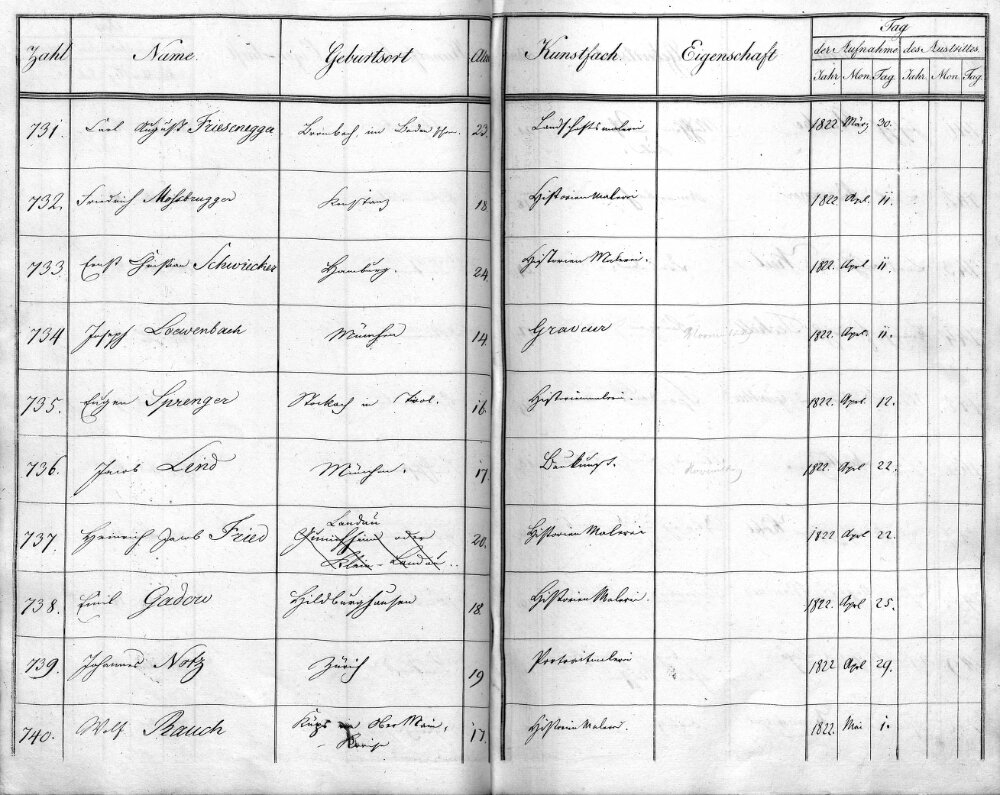 Tag
Zahl Name. Geburtsort Alter Kunstfach Eigenschaft der Aufnahme des Austrittes.
Jahr Mon. Tag. Jahr. Mon Tag.
731. Carl August Friesenegger Brombach, im Baden 23. Landschaftsmalerei 1822 März 30.
732. Friedrich Mosbrugger Konstanz 18. Historien Malerei 1822. April 11.
733. Ernst Christian Schwiecher Hamburg. 24. Historien Malerei. 1822. April 11.
734 Joseph Loewenbach München 14. Graveur 1822. April. 11.
735. Eugen Sprenger Stockach in Tirol. 16. Historienmalerei. 1822. April. 12.
736. Jacob Lend München. 17. Baukunst. 1822. April 22.
Landau
737. Heinrich Jacob Fried oder 20. Historien Malerei 1822 April 22.
Klein-Landau..
738. Emil Gadow Hildburghausen 18. Historien Malerei. 1822. April 25.
739. Johannes Notz Zürich 19 Portraitmalerei 1822 April 29.
740. Wolf Rauch Küps im Ober Main, 17. Historien Malerei. 1822. Mai 1.
Kreise